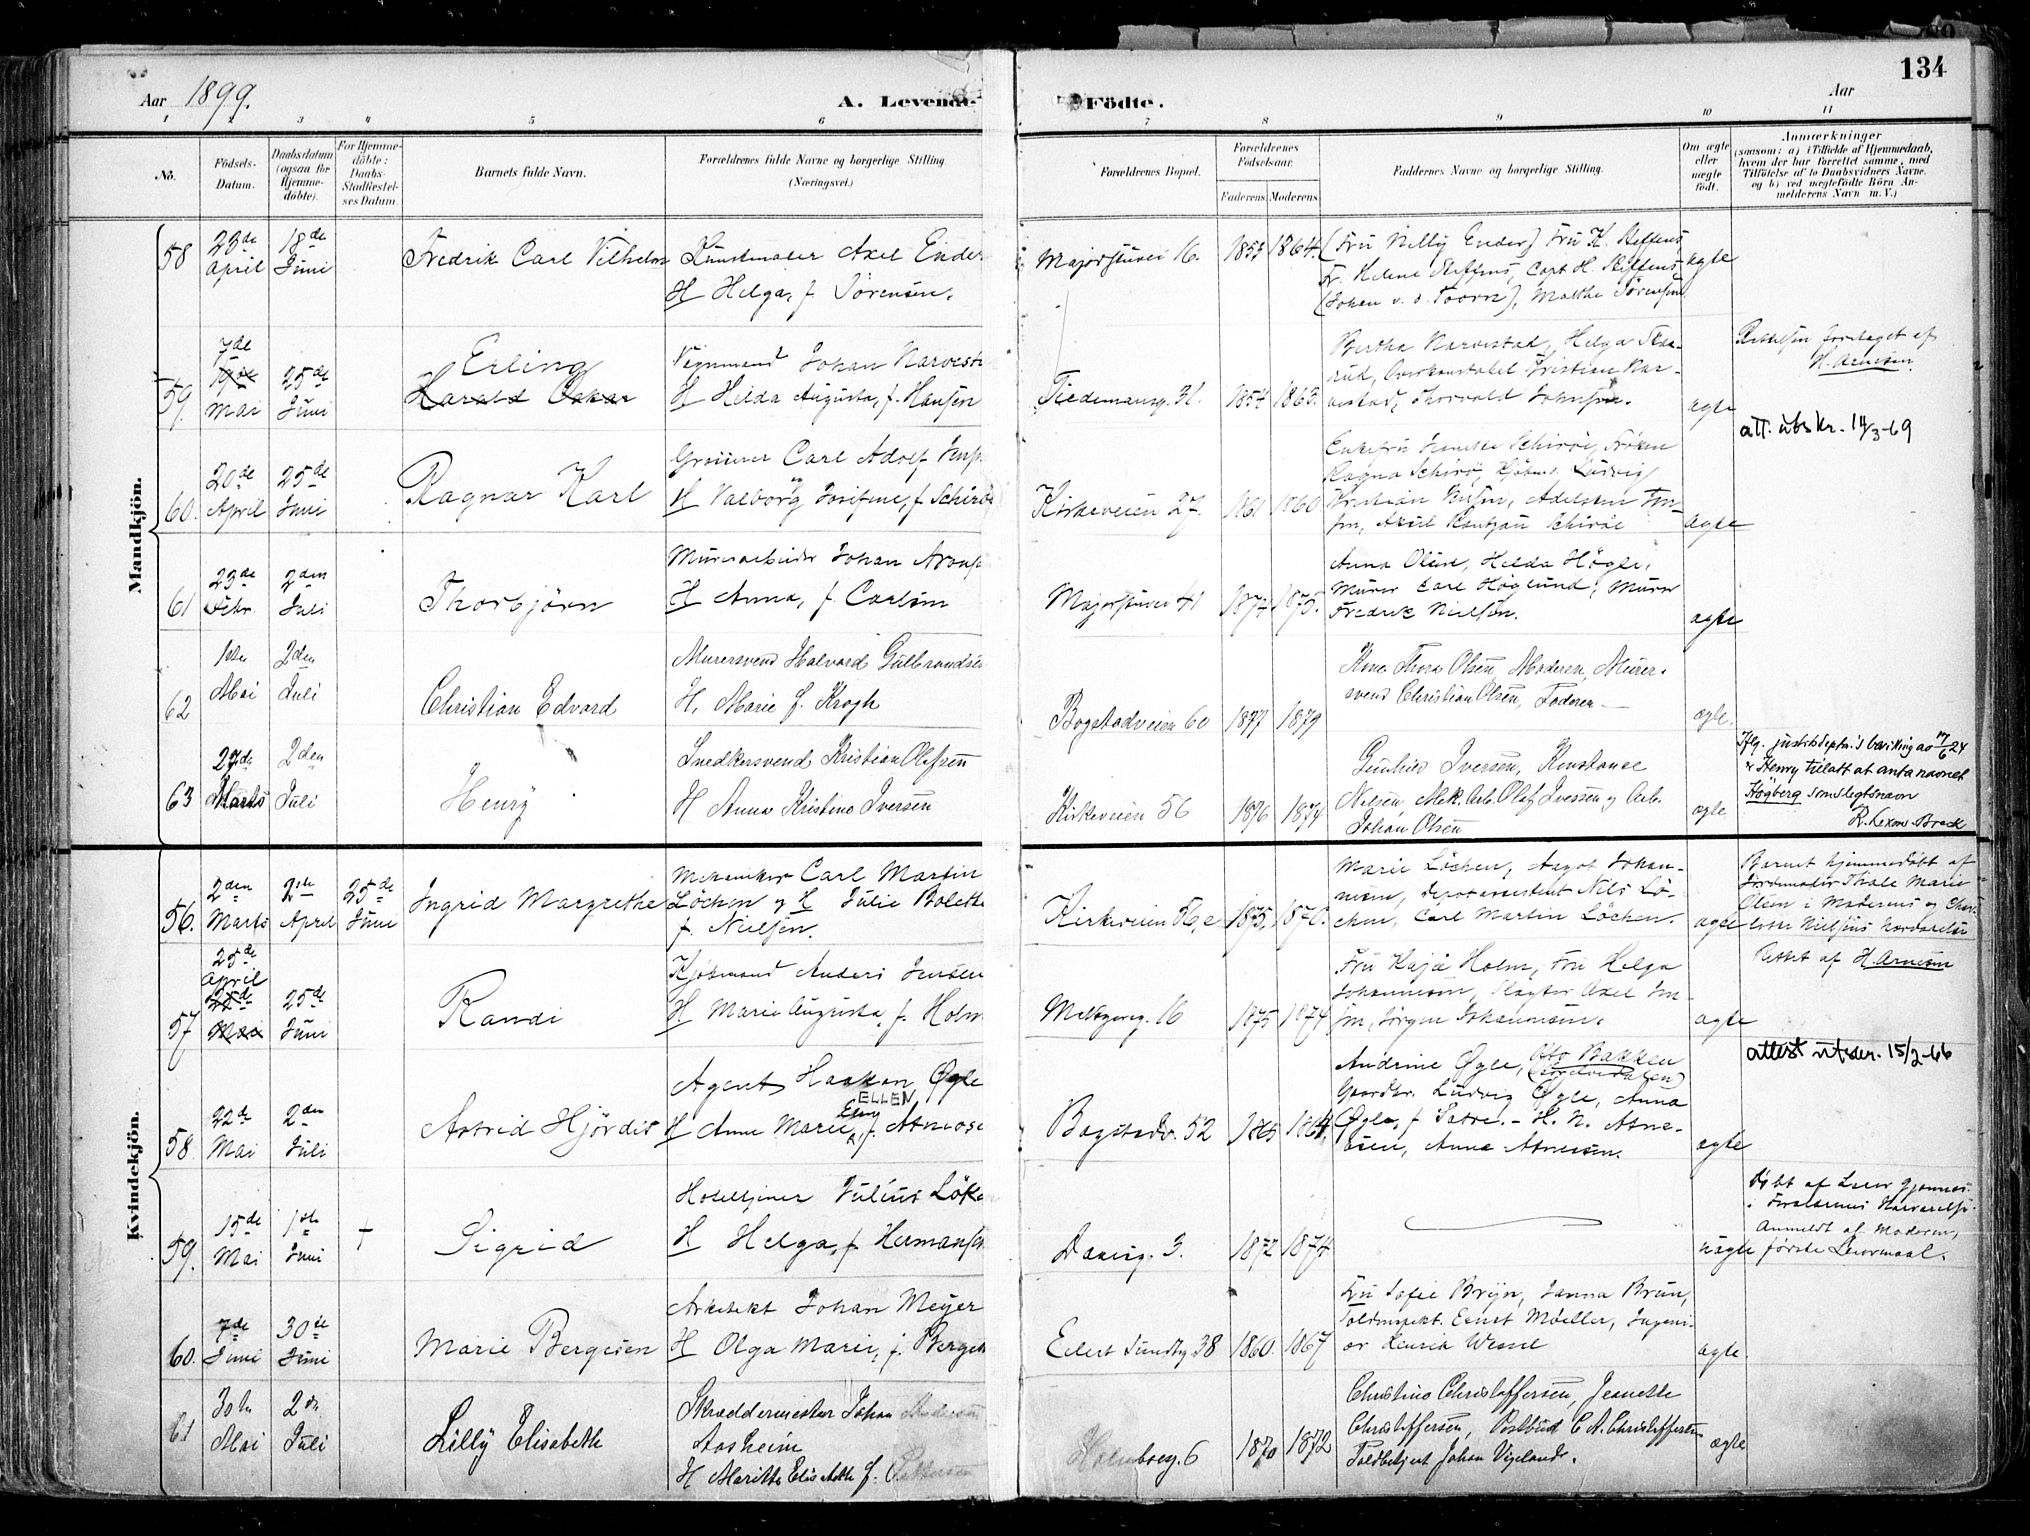 134
Aar 1899.
A. Levende
Födte.
Aar
1 2 3 4 5 6 7 8 9 10 11
No.
Födsels-Datum.
Daabsdatum (ogsaa for Hjemme-döbte).
For Hjemme-döbte: Daabs-Stadfæstel-ses Datum.
Barnets fulde Navn.
Forældrenes fulde Navne og borgerlige Stilling.
(Næringsvei.)
Forældrenes Bopæl.
Forældrenes Födselsaar.
Faderens. Moderens.
Faddernes Navne og borgerlige Stilling.
Om ægte eller uægte födt.
Anmærkninger
(saasom: a) i Tilfælde af Hjemmedaab, hvem der har forrettet samme, med Tilföielse af to Daabsvidners Navne. og b) ved uægtefödte Börn An-melderens Navn m. V.)
Mandkjön.
58 23de April 18de Juni
Fredrik Carl Vilhelm
Kunstmaler Axel Ender
H Helga, f. Sörensen.
Majorstuvei 16. 1853 1864
(Fru Nilly Ender) Fru K. Steffens
Fr. Helene Steffens, Capt. H. Steffens
(Johan v. d. Toorn), Marthe Sörensen
ægte
59. 7de Mai 25de Juni
Erling
Harald Oskar
Vognmand Johan Narvesta
H Hilda Augusta, f. Hansen
Tiedemansg. 31. 1854 1863.
Bertha Narvestad, Helga
rud, Overkonstabel Kristian Nar-
vestad, Thorvald Johnsen.
ægte
Rettelsen foretaget af
H. Arnesen.
att. utskr. 14/3-69
60. 20de April 25de Juni
Ragnar Karl
Carl Adolf
H Valborg Josefine, f. Schiröe
Kirkeveien 27. 1861 1860
Enkefru Schiröe, Fröken
Ragna Schirö, Kjøbm. Ludvig
Kristian
Schiröe
ægte
61 23de Febr. 2den Juli
Thorbjörn
Murerarbeider Johan Arons
H Anna, f. Carlsen
Majorstuvei 41 1874 1875.
Anna Olsen, Hilda Högle,
Murer Carl Höglund, Murer
Fredrik Nielsen.
ægte
62 1ste Mai 2den Juli
Christian Edvard
Murersvend Halvard Gulbrandsen
H. Marie f. Krogh
Bogstadveien 60 1877 1879
Kone Thora Olsen, Moderen, Murer-
svend Christian Olsen, Faderen
ægte.
63 27de Marts 2den Juli
Henry
Snedkersvend Kristian Olafsen
H Anna Kristine Iversen
Kirkeveien 56 1876 1874
Gunhild Iversen, Konstanse
Nilsen, Mek. Arb. Olaf Iversen og Arb.
Johan Olsen
ægte
Iflg. justitsdeptn's bevilling av 17/6 24
er Henry tillatt at anta navnet
Högberg som slegtsnavn
R. Lexow-Breck
Kvindekjön.
56. 2den Marts 2den April 25de Juni
Ingrid Margrethe
Mekaniker Carl Martin
Löchen og H Julie Bolette
f. Nielsen.
Kirkeveien 56, c 1875. 1876.
Marie Löchen, Aagot Johan-
nesen, Depotassistent Nils Lö-
chen, Carl Martin Löchen.
ægte
Barnet hjemmedöbt af
Jordemoder Thale Marie
Olsen i Moderens og Char-
lotte Nielsens Nærværelse
57 25de April
25de Mai 25de Juni
Randi
Kjöbmand Anders Jensen
H Marie Augusta, f. Holm
Meltzersg. 16 1875 1874
Fru Kaja Holm, Fru Helga
Johannesen, Slagter Axel Jen-
sen, Jörgen Johannesen.
ægte
Rettet af H. Arnesen
attest utsder. 15/2-66
58 22de Mai 2den Juli
Astrid Hjördis
Agent Haakon Øgle
ELLEN
Elen
H Anne Marie, f. Atneose
Bogstadv. 52 1865 1864.
Andrine Øgle, Otto Bakken
Gaardbr. Ludvig Øgle, Anna
Øgle, f. Satre. - H. N. Atne-
osen, Anna Atnesen.
ægte
59. 15de Mai 1ste Juni †
Sigrid
Hoteltjener Julius Löke
H Helga, f. Hermansen
Daasg. 3. 1872 1874
uægte
Döbt af
i Forældrenes Nærværelse.
Anmeldt af Moderen,
første Leiermaal.
60. 7de Juni 30te Juni
Marie Bergesen
Arkitekt Johan Meyer
H Olga Marie, f. Berges
Eilert Sundtsg 38 1860. 1867
Fru Sofie Bryn, Janna Brun,
Toldinspekt. Ernst Møeller, Ingeni-
ør Henrik Wessel
ægte.
61 30te Mai 2den Juli
Lilly Elisabeth
Skræddermester Johan Andersen
Aasheim
H Marithe Elisabeth f. Pettersen
Holmboesg. 6 1870 1872
Christine Christoffersen, Jeanette
Christoffersen, Postbud C A. Christoffersen
Toldbetjent Johan Vigeland.
ægte